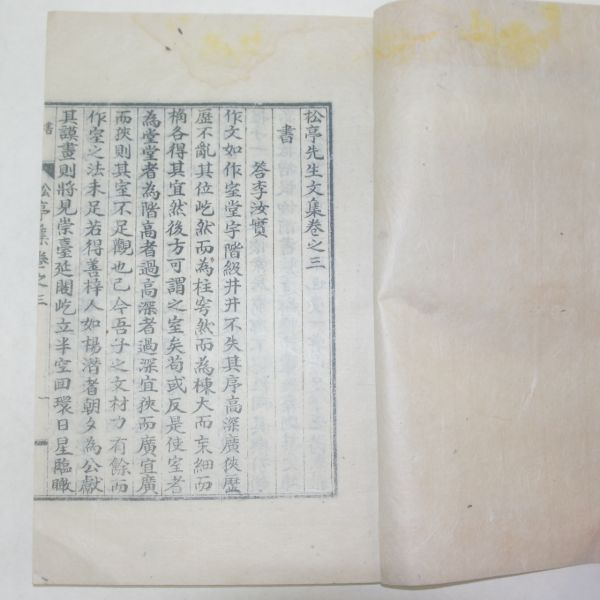 松亭先生文集卷之三
書
答李汝實
作文如作室堂宇階級井井不失其序高深廣狹歷
歷不亂其位屹然而為柱穹然而為棟大而杗細而
桷各得其宜然後方可謂之室矣苟或反是使室者
為堂堂者為階高者過高深者過深宜狹而廣宜廣
而狹則其室不足觀也已今吾子之文材力有餘而
作室之法未足若得善梓人如楊潛者朝夕為公獻
其謨畫則將見崇臺延閣屹立半空回環日星臨瞰
書
松亭集卷之三
一